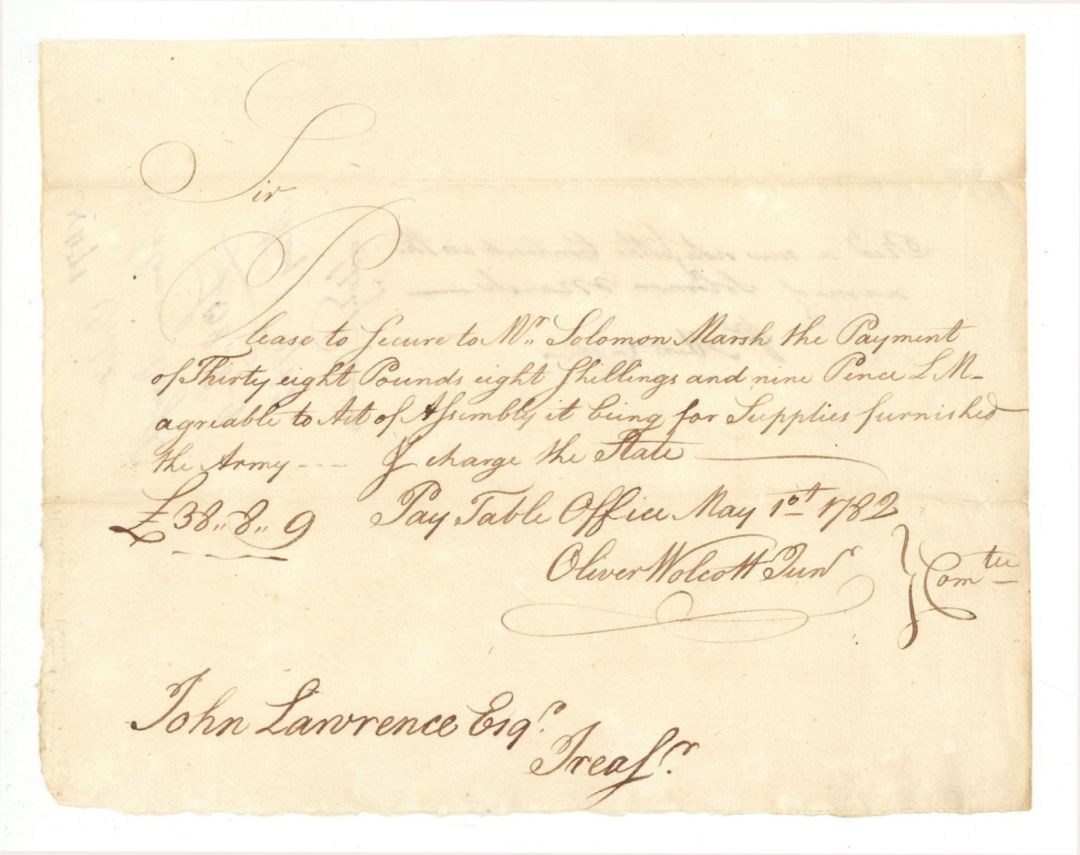 Sir
Please to Secure to Mr. Solomon Marsh the Payment
of Thirty eight Pounds eight Shillings and nine Pence L M—
agreable to Act of Assembly it being for Supplies furnished
the Army --- & charge the State —
£38,, 8,, 9 Pay Table Office May 1st 1782
Oliver Wolcott Junr } Comtee
John Lawrence Esqr.
Treasr.